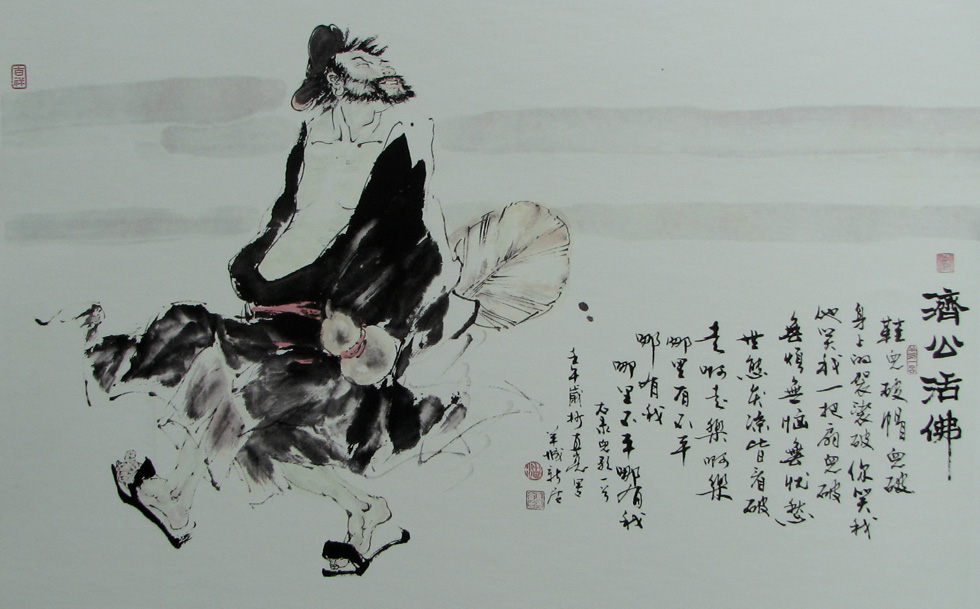 濟公活佛
鞋兒破帽兒破
身上的袈裟破你笑我
他笑我一把扇兒破
無煩無惱無忧愁
世態炎凉皆看破
走啊走樂啊樂
哪里有不平
哪有我
哪里不平哪有我
右录兒歌一首
壬午嵗
羊城
吉祥